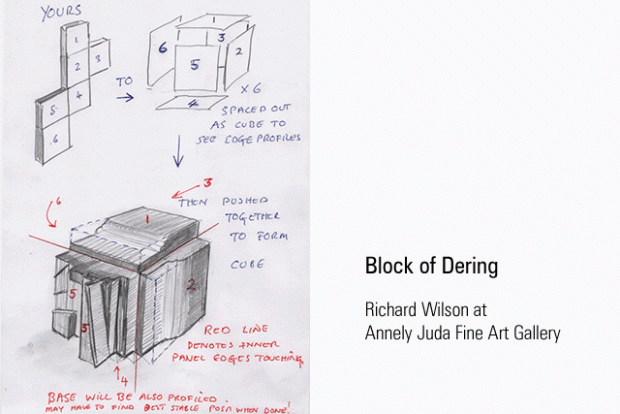 YOURS
1
2
3
4
5
6
TO
6
3
2
5
4
X6
SPACED OUT
AS CUBE TO
SEE EDGE PROFILES
6
3
1
THEN PUSHED
TOGETHER
TO FORM
CUBE
5
5
2
RED LINE
DENOTES INNER
PANEL EDGES TOUCHING
4
BASE WILL BE ALSO PROFILED.
MAY HAVE TO FIND BEST STABLE POSN WHEN DONE!
Block of Dering
Richard Wilson at
Annely Juda Fine Art Gallery